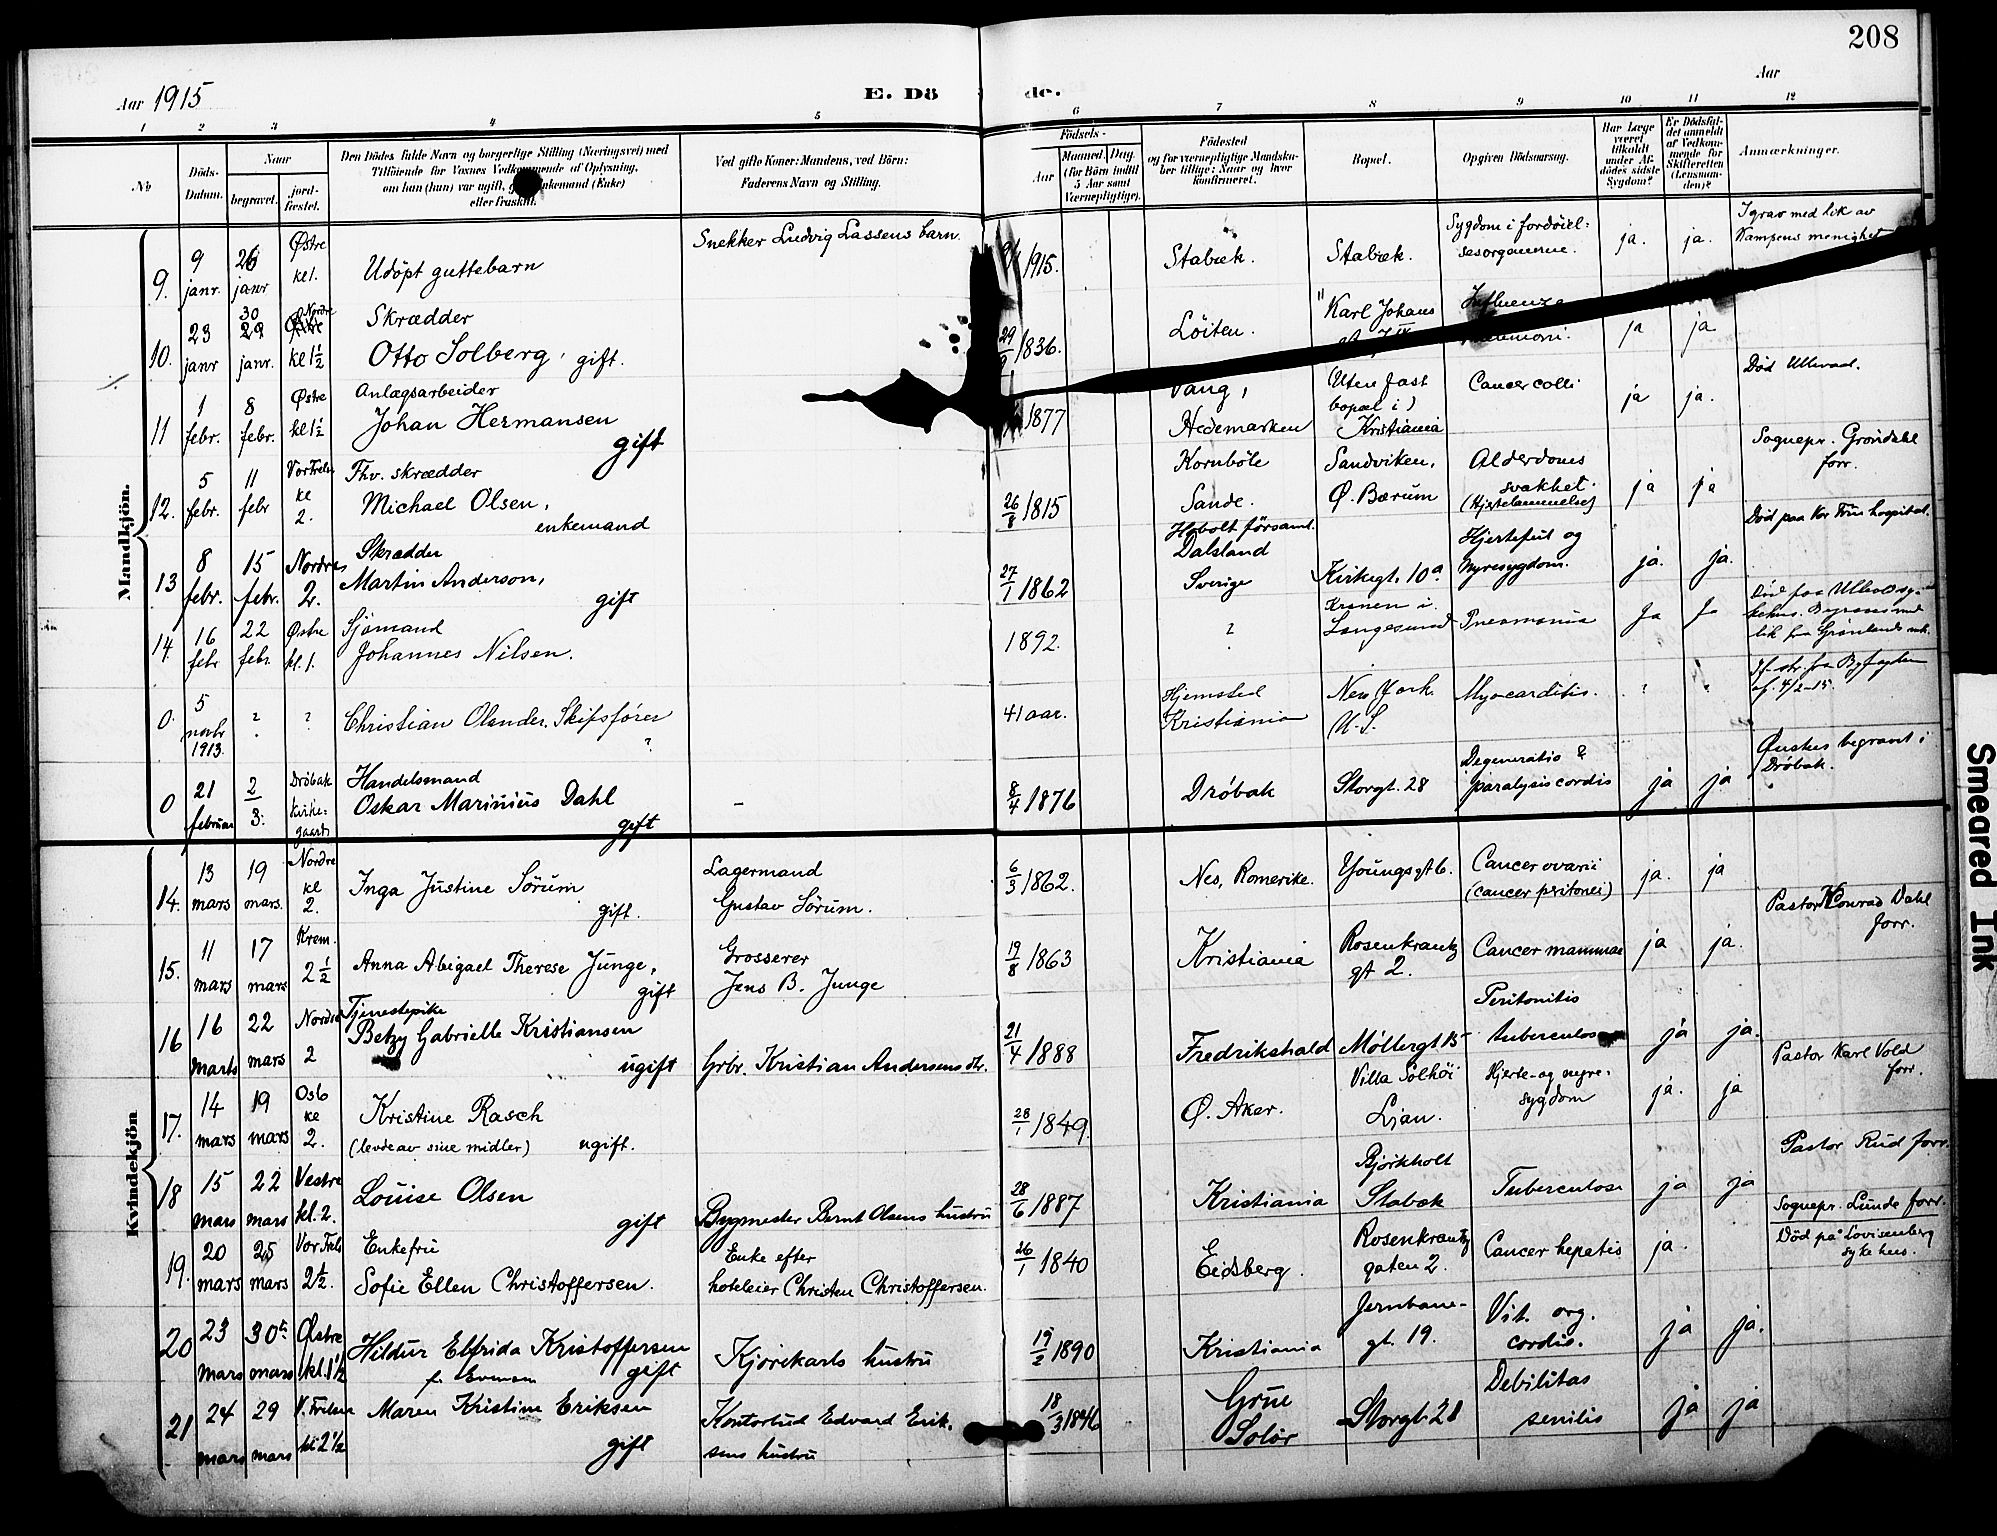 208
Aar 1915
E. Dö de.
Aar
1 2 3 4 5 6 7 8 9 10 11 12
No
Döds-Datum.
Naar
begravet.
jord-fæstet.
Den Dödes fulde Navn og borgerlige Stilling (Næringsvei) med
Tilföiende for Voxnes Vedkommende af Oplysning,
om han (hun) var ugift, gift, Enkemand (Enke)
eller fraskilt.
Ved gifte Koner: Mandens, ved Börn:
Faderens Navn og Stilling.
Födsels-
Aar
Maaned. Dag.
(for Börn indtil
5 Aar samt
Værnepligtige).
Födested
og for værnepligtige Mandska-
ber tillige: Naar og hvor
konfirmeret.
Bopæl.
Opgiven Dödsaarsag.
Har Læge
været
tilkaldt
under Af-
dödes sidste
Sygdom?
Er Dödsfal-
det anmeldt
af Vedkom-
mende for
Skifteretten
(Lensman-
den)?
Anmærkninger.
Mandkjön.
9. 9 janr. 26 janr Østre kl 1. Udöpt guttebarn
Snekker Ludvig Lassens barn.
9/1 1915. Stabæk. Stabæk.
Sygdom i fordöiel-
sesorganerne.
ja. ja.
I grav med lik av
Kampens menighet
10. 23 janr 30 29 janr. Nordre Østre kl 1½
Skrædder
Otto Solberg, gift.
29/9 1836. Löiten.
Karl Johans
Influenza
ja ja
11 1 febr. 8 febr. Østre kl 1½
Anlægsarbeider
Johan Hermansen
gift
1877
Vang,
Hedemarken
(Uten fast
bopæl i)
Kristiania
Cancer colli
ja ja.
Död Ullevaal.
12. 5 febr. 11 febr Vor Frels ke 2.
Fhv. skrædder
Michael Olsen,
enkemand
26/8 1815
Kornböle
Sande.
Sandviken,
Ø. Bærum
Alderdoms
svakhet.
(Hjertelammelse)
ja ja
Sognepr. Gröndahl
forr.
13 8 febr. 15 febr. Nordre 2.
Skrædder
Martin Anderson,
gift
27/1 1862
Dalsland
Sverige
Kirkegt. 10a.
Hjertefeil og
nyresygdom.
ja. ja.
Död paa Vor Frue hospital.
14. 16 febr 22 febr. Østre kl. 1.
Sjömand
Johannes Nilsen.
1892. ?
Langesund
Pneumonia
Ja Ja
0. 5 novbr 1913. ? ?
Christian Olander, Skipsförer
?
41 aar.
Hjemsted
Kristiania
New York.
U. S.
Myocarditis. ? "
af. 4/2-15.
0 21 februar 2/3. Dröbak kirke-gaard
Handelsmand
Oskar Marinius Dahl
gift
-
8/4 1876 Dröbak Storgt. 28
Degeneratio &
paralysis cordis
ja ja
Ønskes begravet i
Dröbak.
Kvindekjön
14. 13 mars 19 mars. Nordre ke 2.
Inga Justine Sörum
gift.
Lagermand
Gustav Sörum.
6/3 1862. Nes, Romerike. Youngsgt 6.
Cancer ovarii
(cancer pritonei)
ja. ja
15. 11 mars 17 mars Krem. 2½
Anna Abigael Therese Junge,
gift
Grosserer
Jens B. Junge
19/8 1863 Kristiania
Rosenkrantz
gt 2.
Cancer mammae ja ja.
Pastor Konrad Dahl
forr.
16 16 marts 22 mars Nordre 2
Tjenestepike
Betzy Gabrielle Kristiansen
ugift
Grbr. Kristian Andersens dtr.
21/4 1888 Fredrikshald Möllergt 15
Peritonitis
tuberculosa
ja ja.
17. 14 mars 19 mars Oslo ke 2.
Kristine Rasch
(levde av sine midler) ugift.
28/1 1849. Ø. Aker.
Villa Solhöi
Ljan.
Hjerte- og nyre-
sygdom
ja. ja
Pastor Karl Vold
forr.
18 15 mars 22 mars Vestre kl. 2.
Louise Olsen
gift
Bygmester Bernt Olsens hustru
28/6 1887 Kristiania
Bjørkholt
Stabæk
Tuberculose ja ja
Pastor Rud forr.
19. 20 mars 25 mars Vor Frels 2½.
Enkefru
Sofie Ellen Christoffersen.
Enke efter
hoteleier Christen Christoffersen.
26/1 1840 Eidsberg.
Rosenkrantz
gaten 2.
Cancer hepatis ja.
Sognepr. Lunde forr.
Död på Lovisenberg
sykehus.
20 23 mars 30te mars Østre kl. 1½
Hildur Elfrida Kristoffersen
gift
Kjörekarls hustru
19/2 1890 Kristiania
Jernbane-
gt. 19.
Vit. org.
cordis.
ja ja.
21 24 mars 29 mars V. Frelser kl 2½
Maren Kristine Eriksen
gift
Kontorbud Edvard Erik-
sens hustru
18/3 1846
Grue
Solör
Storgt. 28
Debilitas
senilis
ja ja
Smeared Ink